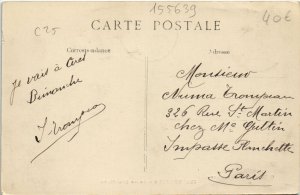 C25
155639
40€
CARTE POSTALE
Correspondance
Adresse
Je vais à
Dimanche
Monsieur
Numa
326 Rue St Martin
chez Mr
Impasse Planchette
Paris